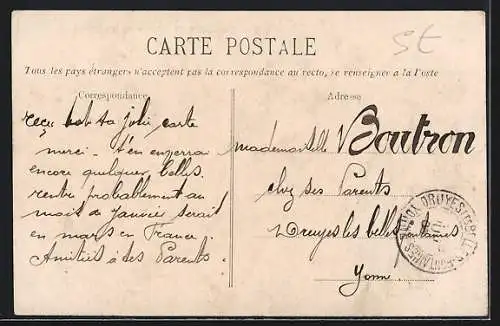 CARTE POSTALE
5E
Tous les pays étrangers n'acceptent pas la correspondance au recto, se renseigner à la Poste
Correspondance
Adresse
reçu ta jolie carte
merci. t'en enverrai
encore quelques belles.
rentre probablement au
mois de Janvier serait
en mars en France.
Amitiés à tes Parents.
Mademoiselle Boutron
chez ses Parents
Druyes les belles fontaines
Yonne
DRUYES-LES-BELLES-FONTAINES